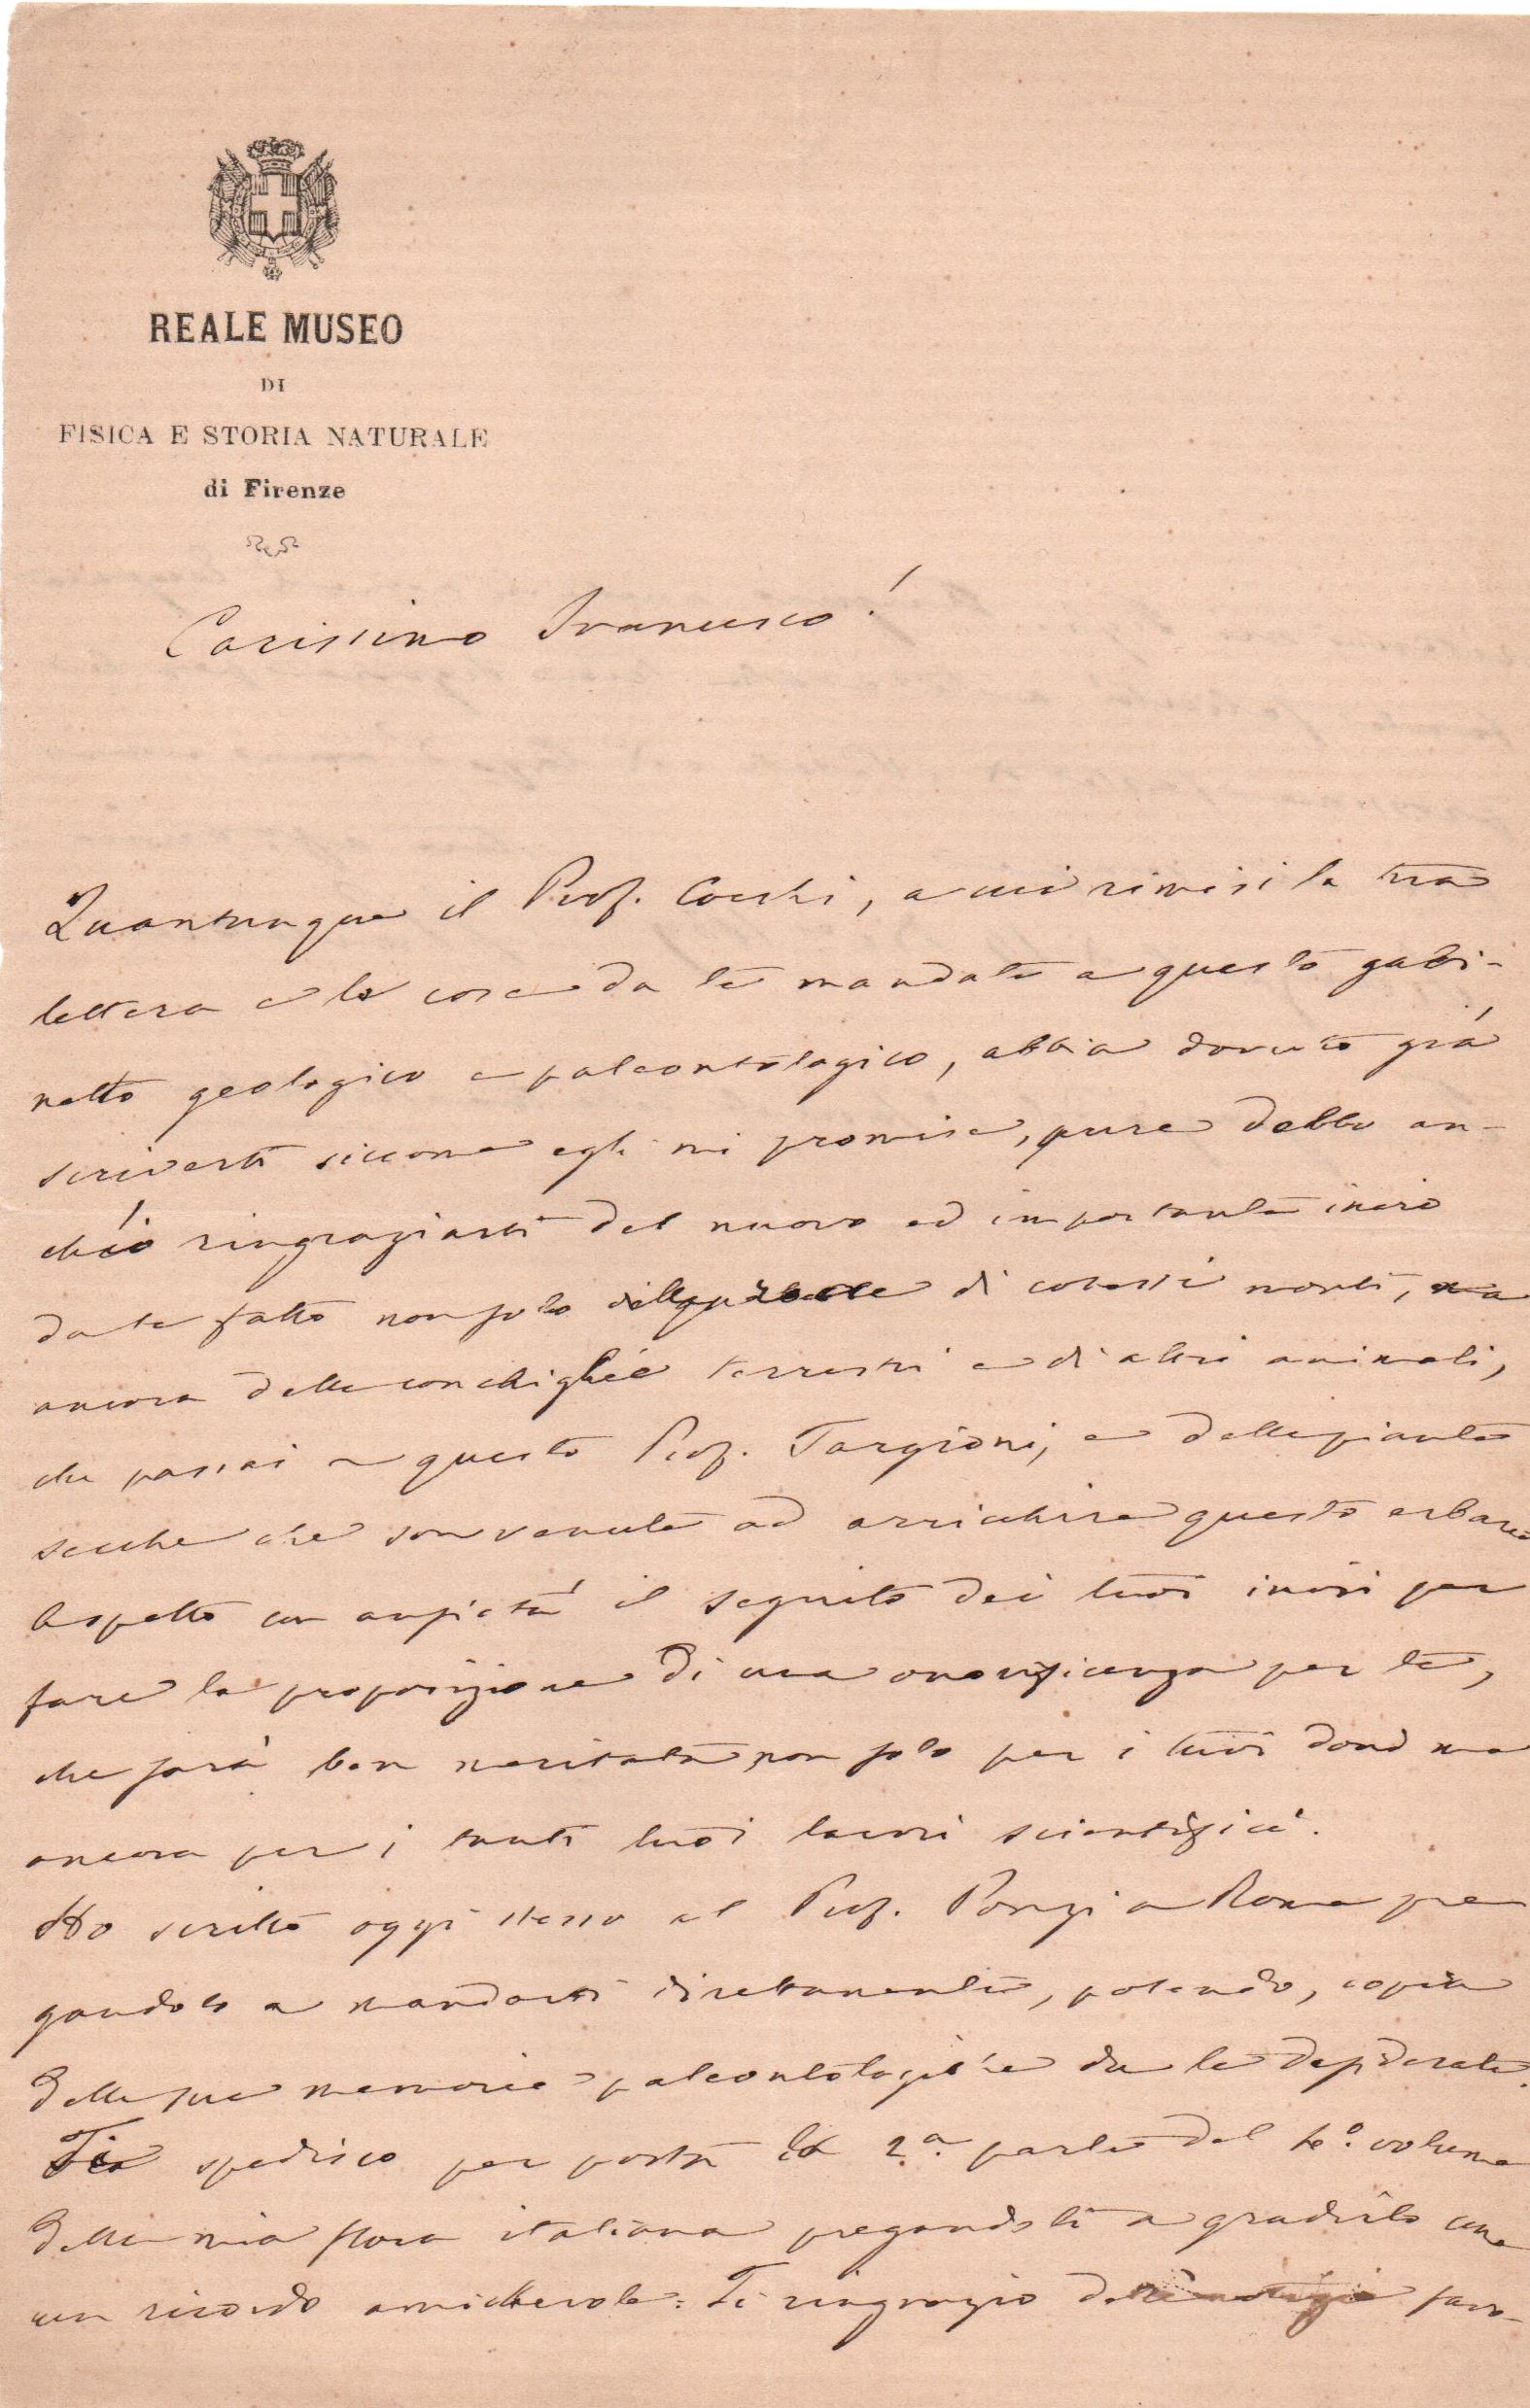 REALE MUSEO
DI
FISICA E STORIA NATURALE
di Firenze
Carissimo Francesco!
Quantunque il Prof. Cocchi, a cui rimisi la tua
lettera e le cose da te mandate a questo gabi-
netto geologico e paleontologico, abbia dovuto già
scriverti siccome egli mi promise, pure debbo an-
ch'io ringraziarti del nuovo ed importante invio
da te fatto non solo delle di cotesti monti, ma
ancora delle conchiglie terrestri e di altri animali,
che passai a questo Prof. Targioni, e delle piante
secche che son venute ad arricchire questo erbario
Aspetto con ansietà il seguito dei tuoi invii per
fare la proposizione di una onorificenza per te,
che sarà ben meritata non solo per i tuoi doni ma
ancora per i tanti tuoi lavori scientifici.
Ho scritto oggi stesso al Prof. Ponzi a Roma pre
gandolo a mandarti direttamente, potendo, copia
delle sue memorie paleontologiche da te desiderate.
Ti spedisco per posta la 2.a parte del 4.o volume
della mia flora italiana pregandoti a gradirlo come
un ricordo amichevole. Ti ringrazio delle notizie favo-